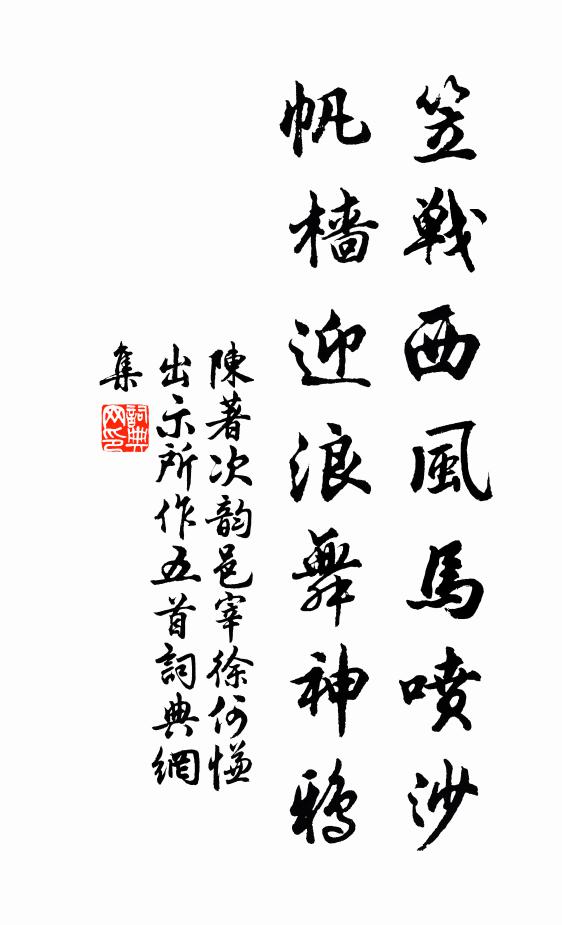 笠戰西風馬噴沙
帆檣迎浪舞神鴉
陳著次韵邑宰徐何慊
出示所作五首詞典網
集
詞典
网印